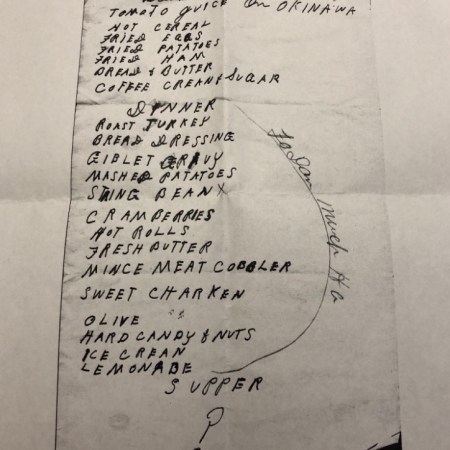 TOMATO JUICE On OKINAWA
HOT CEREAL
FRIED EGGS
FRIED PATATOES
FRIED HAM
BREAD & BUTTER
COFFEE CREAM & SUGAR
DINNER
ROAST TURKEY
BREAD DRESSING
GIBLET GRAVY
MASHED PATATOES
STING BEANX
CRAMBERRIES
HOT ROLLS
FRESH BUTTER
MINCE MEAT COBBLER
SWEET CHARKEN
OLIVE
HARD CANDY & NUTS
ICE CREAN
LEMONADE
SUPPER
?
much Ha